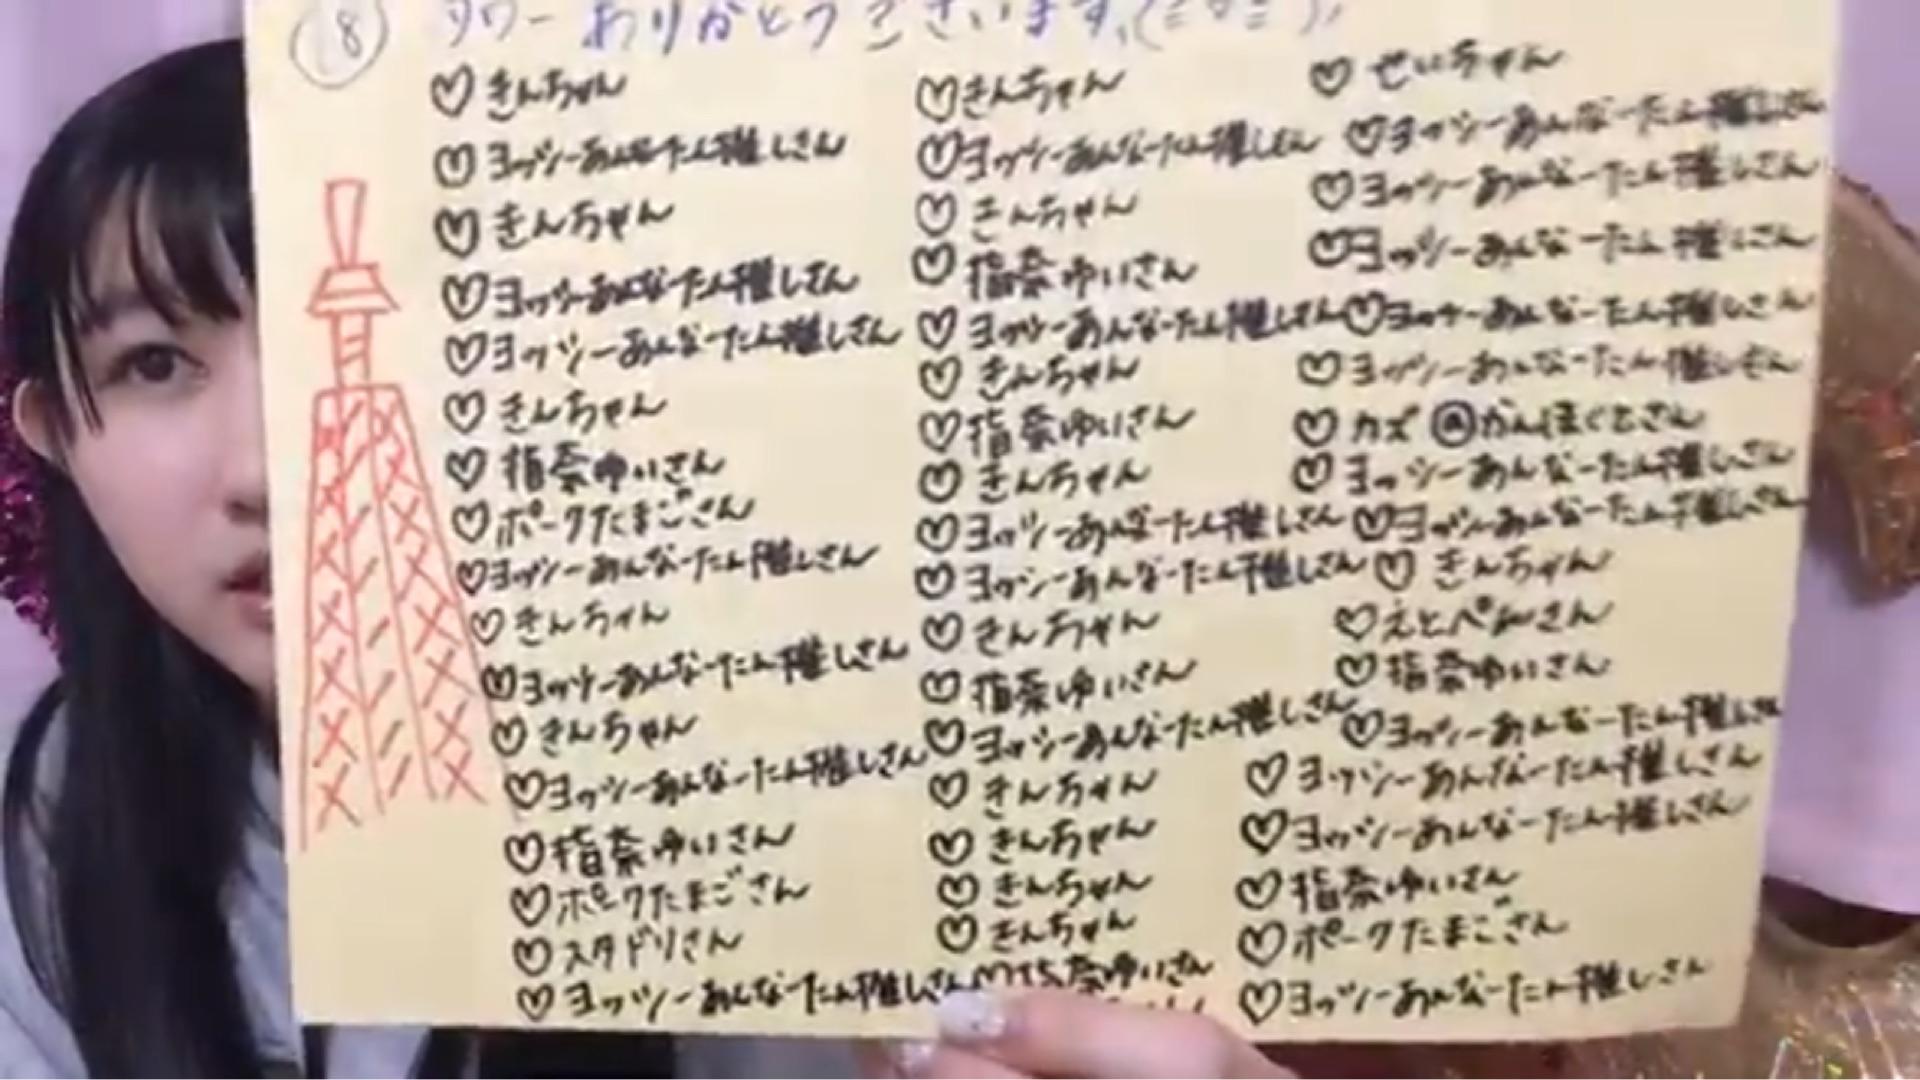 18
タワーありがとうございます
♡きんちゃん
♡ヨッシーあんなーたん推しさん
♡きんちゃん
♡ヨッシーあんなーたん推しさん
♡ヨッシーあんなーたん推しさん
♡きんちゃん
♡指奈ゆいさん
♡ポークたまごさん
♡ヨッシーあんなーたん推しさん
♡きんちゃん
♡ヨッシーあんなーたん推しさん
♡きんちゃん
♡ヨッシーあんなーたん推しさん
♡指奈ゆいさん
♡ポークたまごさん
♡スタドリさん
♡ヨッシーあんなーたん推しさん
♡きんちゃん
♡ヨッシーあんなーたん推しさん
♡きんちゃん
♡指奈ゆいさん
♡ヨッシーあんなーたん推しさん
♡きんちゃん
♡指奈ゆいさん
♡きんちゃん
♡ヨッシーあんなーたん推しさん
♡ヨッシーあんなーたん推しさん
♡きんちゃん
♡指奈ゆいさん
♡ヨッシーあんなーたん推しさん
♡きんちゃん
♡きんちゃん
♡きんちゃん
♡きんちゃん
♡指奈ゆいさん
♡せいちゃん
♡ヨッシーあんなーたん推しさん
♡ヨッシーあんなーたん推しさん
♡ヨッシーあんなーたん推しさん
♡ヨッシーあんなーたん推しさん
♡ヨッシーあんなーたん推しさん
♡カズ@かんほくとさん
♡ヨッシーあんなーたん推しさん
♡ヨッシーあんなーたん推しさん
♡きんちゃん
♡えとぺんさん
♡指奈ゆいさん
♡ヨッシーあんなーたん推しさん
♡ヨッシーあんなーたん推しさん
♡ヨッシーあんなーたん推しさん
♡指奈ゆいさん
♡ポークたまごさん
♡ヨッシーあんなーたん推しさん